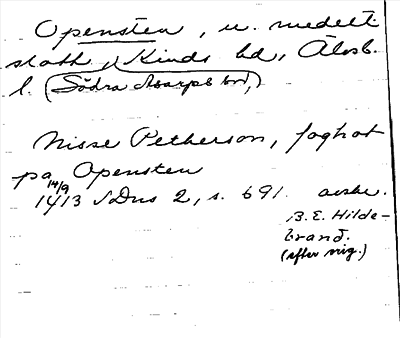 Opensten, u. medelt.
slott, Kinds hd, Älvsb.
l. (Södra Åsarps sn,)
Nisse Petherson, foghot
pa Opensten
14/9
1413 SDns 2, s. 691. avskr.
B.E. Hilde-
brand.
(efter orig.)